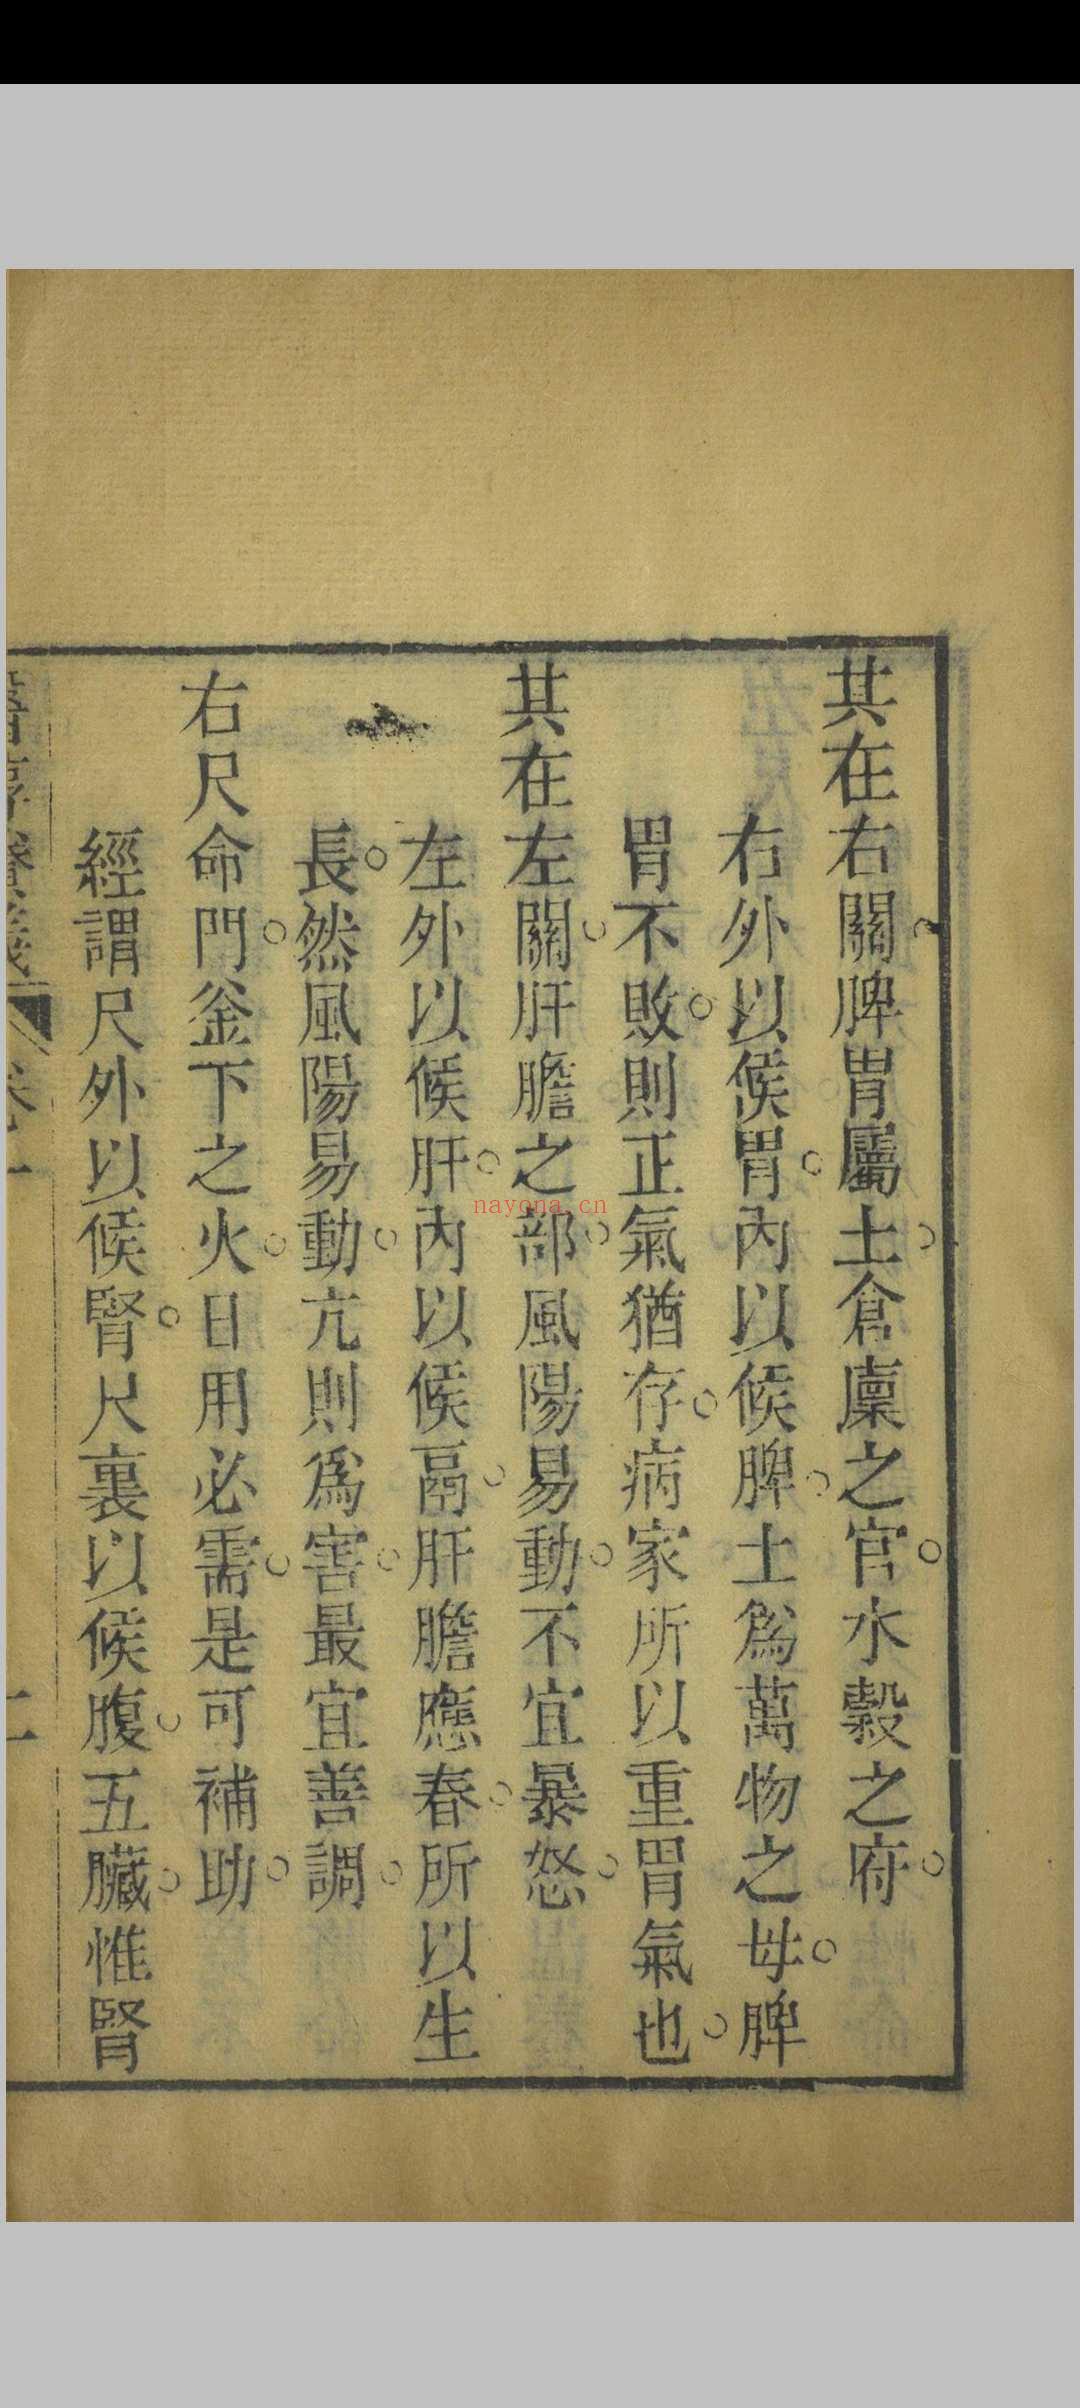 其在右關脾胃屬土倉廩之官水穀之府
右外以候胃內以候脾土爲萬物之母脾
胃不敗則正氣猶存病家所以重胃氣也
其在左關肝膽之部風陽易動不宜暴怒
左外以候肝內以候鬲肝膽應春所以生
長然風陽易動亢則爲害最宜善調
右尺命門釜下之火日用必需是可補助
經謂尺外以候腎尺裏以候腹五臟惟腎
nayona.cn